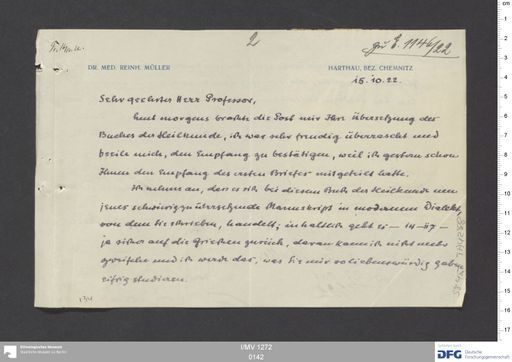 2
zu E. 1146/22
DR. MED. REINH. MÜLLER
HARTHAU, BEZ. CHEMNITZ
15.10.22.
Sehr geehrter Herr Professor,
heut morgens brachte die Post mir Ihre Übersetzung des
Buches der Heilkunde, ich war sehr freudig überrascht und
beeile mich, den Empfang zu bestätigen, weil ich gestern schon
Ihnen den Empfang des ersten Briefes mitgeteilt hatte.
Ich nehme an, dass es sich bei diesem Buch der Heilkunde um
jenes schwierig zu übersetzende Manuskript in modernem Dialekt,
von dem Sie schrieben, handelt; inhaltlich geht es
ja sicher auf die Griechen zurück, daran kann ich nicht mehr
zweifeln und ich werde das, was Sie mir so liebenswürdig gaben
eifrig studieren.
I/MV 1272
0142
Ethnologisches Museum
Staatliche Museen zu Berlin
DFG
Deutsche
Forschungsgemeinschaft